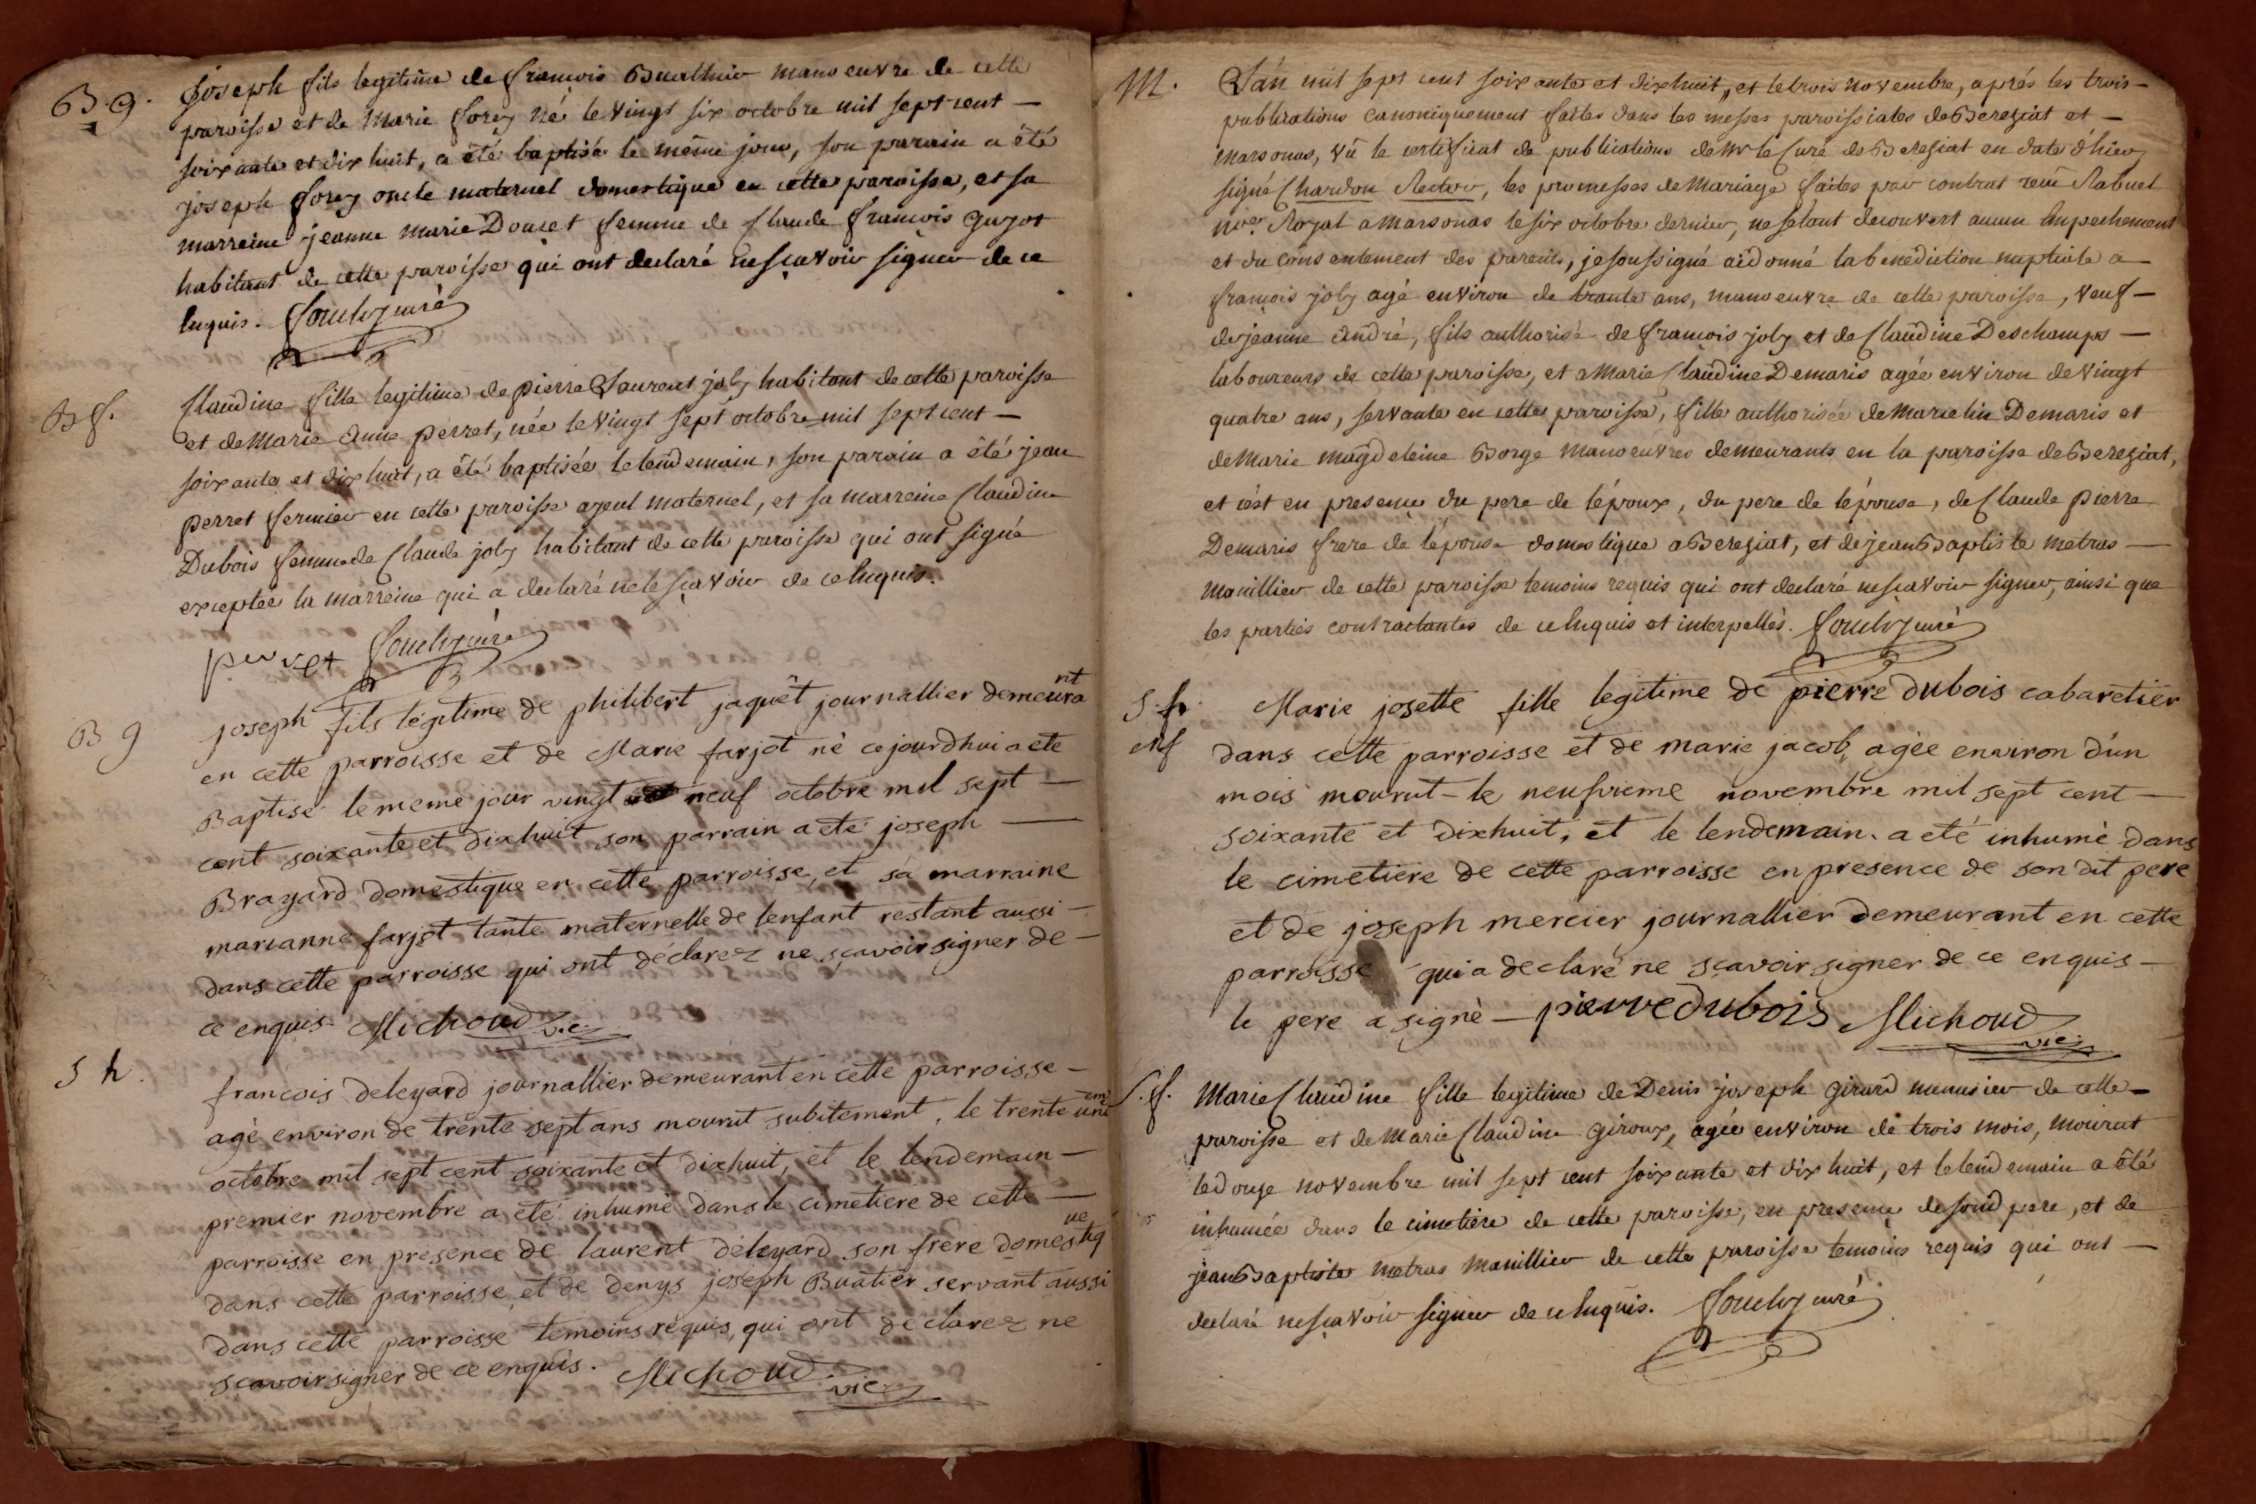 B. g.
joseph fils legitime de françois Buathier manoeuvre de cette
paroisse et de Marie forey né le vingt six octobre mil sept cent —
soixante et dix huit, a été baptisé le même jour, son parain a été
joseph forey oncle maternel domestique en cette paroisse, et sa
marreine jeanne marie Doucet femme de Claude françois guyot
habitant de cette paroisse qui ont declaré ne sçavoir signer de ce
Enquis. curé
B f.
Claudine fille legitime de pierre Laurent joly habitant de cette paroisse
et de Marie Anne perret, née le vingt sept octobre mil sept cent —
soixante et dix huit, a été baptisée le lendemain, son parain a été jean
perret fermier en cette paroisse ayeul maternel, et sa marreine Claudine
Dubois femme de Claude joly habitant de cette paroisse qui ont signé
exceptée la marreine qui a declaré ne le sçavoir de ce Enquis.
perret curé
B g
joseph fils légitime de philibert jaquêt journallier demeurant
en cette parroisse et de Marie farjot né ce jourd'hui a ete
Baptisé le meme jour vingt neuf octobre mil sept —
cent soixante et dixhuit son parrain a eté joseph —
Brayard domestique en cette parroisse, et sa marraine
marianne farjot tante maternelle de l'enfant restant aussi —
dans cette parroisse qui ont déclarez ne sçavoir signer de —
ce enquis. Michoud vic
S h.
francois deleyard journallier demeurant en cette parroisse —
agé environ de trente sept ans mourut subitement, le trente unieme
octobre mil sept cent soixante et dixhuit, et le lendemain —
premier novembre a eté inhumé dans le cimetiere de cette —
parroisse en présence de laurent deleyard son frere domestique
dans cette parroisse, et de denys joseph Buatier servant aussi
dans cette parroisse temoins réquis, qui ont declarez ne
scavoir signer de ce enquis. Michoud vic
M.
L'an mil sept cent soixante et dixhuit, et le trois novembre, aprés les trois —
publications canoniquement faites dans les messes paroissiales de Bereziat et —
Marsonas, vû le certificat de publications de Mr le Curé de Bereziat en date d'hier
signé Chardon Recteur, les promesses de Mariage faites par contrat reçû Rabuel
nore Royal a Marsonas le six octobre dernier, ne s'étant decouvert aucun Empechement
et du consentement des parents, je soussigné ai donné la benediction nuptiale a —
françois joly agé environ de trante ans, manoeuvre de cette paroisse, veuf —
de jeanne André, fils authorisé de françois joly et de Claudine Deschamps —
laboureurs de cette paroisse, et a Marie Claudine Demaris agée environ de vingt
quatre ans, servante en cette paroisse, fille authorisée de Marcelin Demaris et
de Marie magdeleine Borge manoeuvres demeurants en la paroisse de Bereziat,
et c'est en presence du pere de l'époux, du pere de l'épouse, de Claude pierre
Demaris frere de l'épouse domestique a Bereziat, et de jean Baptiste metras —
Manillier de cette paroisse temoins requis qui ont declaré ne sçavoir signer, ainsi que
les parties contractantes de ce Enquis et interpellés. curé
S. fr.
Marie josette fille legitime de pierre dubois cabaretier
dans cette parroisse et de marie jacob, agée environ d'un
mois mourut le neufvieme novembre mil sept cent —
soixante et dixhuit, et le lendemain a eté inhumé dans
le cimetiere de cette parroisse en presence de son dit pere
et de joseph mercier journallier demeurant en cette
parroisse qui a declaré ne sçavoir signer de ce enquis —
le pere a signé — pierre dubois Michoud
vic
S. f.
Marie Claudine fille legitime de Denis joseph girard menusier de cette —
paroisse et de Marie Claudine giroux, agée environ de trois mois, mourut
le douze novembre mil sept cent soixante et dix huit, et le lendemain a été
inhumée dans le cimetière de cette paroisse, en presence de soud pere, et de
jean Baptiste metras Manillier de cette paroisse temoins requis qui ont —
declaré ne sçavoir signer de ce Enquis. curé